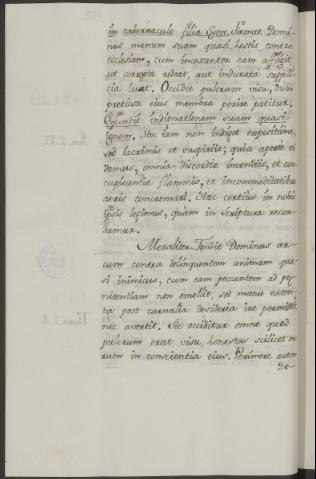 in tabernaculo filiæ Syon. Firmat Domi-
nus manum suam quasi hostis contra
ecclesiam, cum incessanter eam affligit
ut correpta redeat, aut indurata suppli-
cia luat. Occidit pulcrum visu, dum
pretiosa ejus membra perire patitur.
Effundit indignationem suam quasi
ignem. Hæc jam non indiget expositione,
sed lacrimis et suspiriis; quia aperte vi-
demus, omnia discordiæ incendiis, et con-
cupiscentiæ flammis, et incommoditatibus
aeris concremari. Hæc certius in nobis
ipsis legimus, quam in Scriptura recor-
damur.
Moraliter. Tendit Dominus ar-
cum contra delinquentem animam qua-
si inimicus, cum eam peccantem ad pœ-
nitentiam non emollit, sed manu exten-
ta post carnalia desideria ire permittit
nec avertit. Sic occiditur omne quod
pulcrum erat visu, honestas scilicet mo-
rum in conscientia ejus. Perimere autem